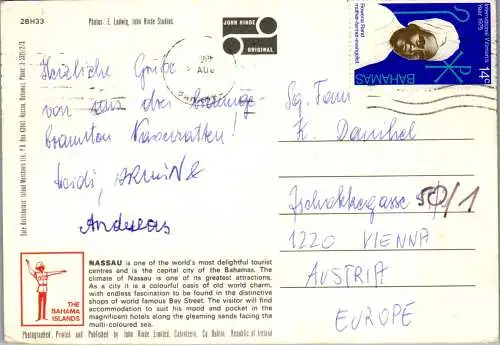 2BH33
Photos: E. Ludwig, John Hinde Studios.
JOHN HINDE
ORIGINAL
International Women's
Year 1975
14c
BAHAMAS
Rowena Rand
mother-farmer-evangelist
AUG
Herzliche Grüße
von den
braunsten Nassauratten!
Heidi, ARMIN &
Andreas
K.
50/1
1220 VIENNA
AUSTRIA
EUROPE
THE
BAHAMA
ISLANDS
NASSAU is one of the world's most delightful tourist
centres and is the capital city of the Bahamas. The
climate of Nassau is one of its greatest attractions.
As a city it is a colourful oasis of old world charm,
with endless fascination to be found in the distinctive
shops of world famous Bay Street. The visitor will find
accommodation to suit his mood and pocket in the
magnificent hotels along the gleaming sands facing the
multi-coloured sea.
Photographed, Printed and Published by John Hinde Limited, Cabinteely, Co. Dublin, Republic of Ireland